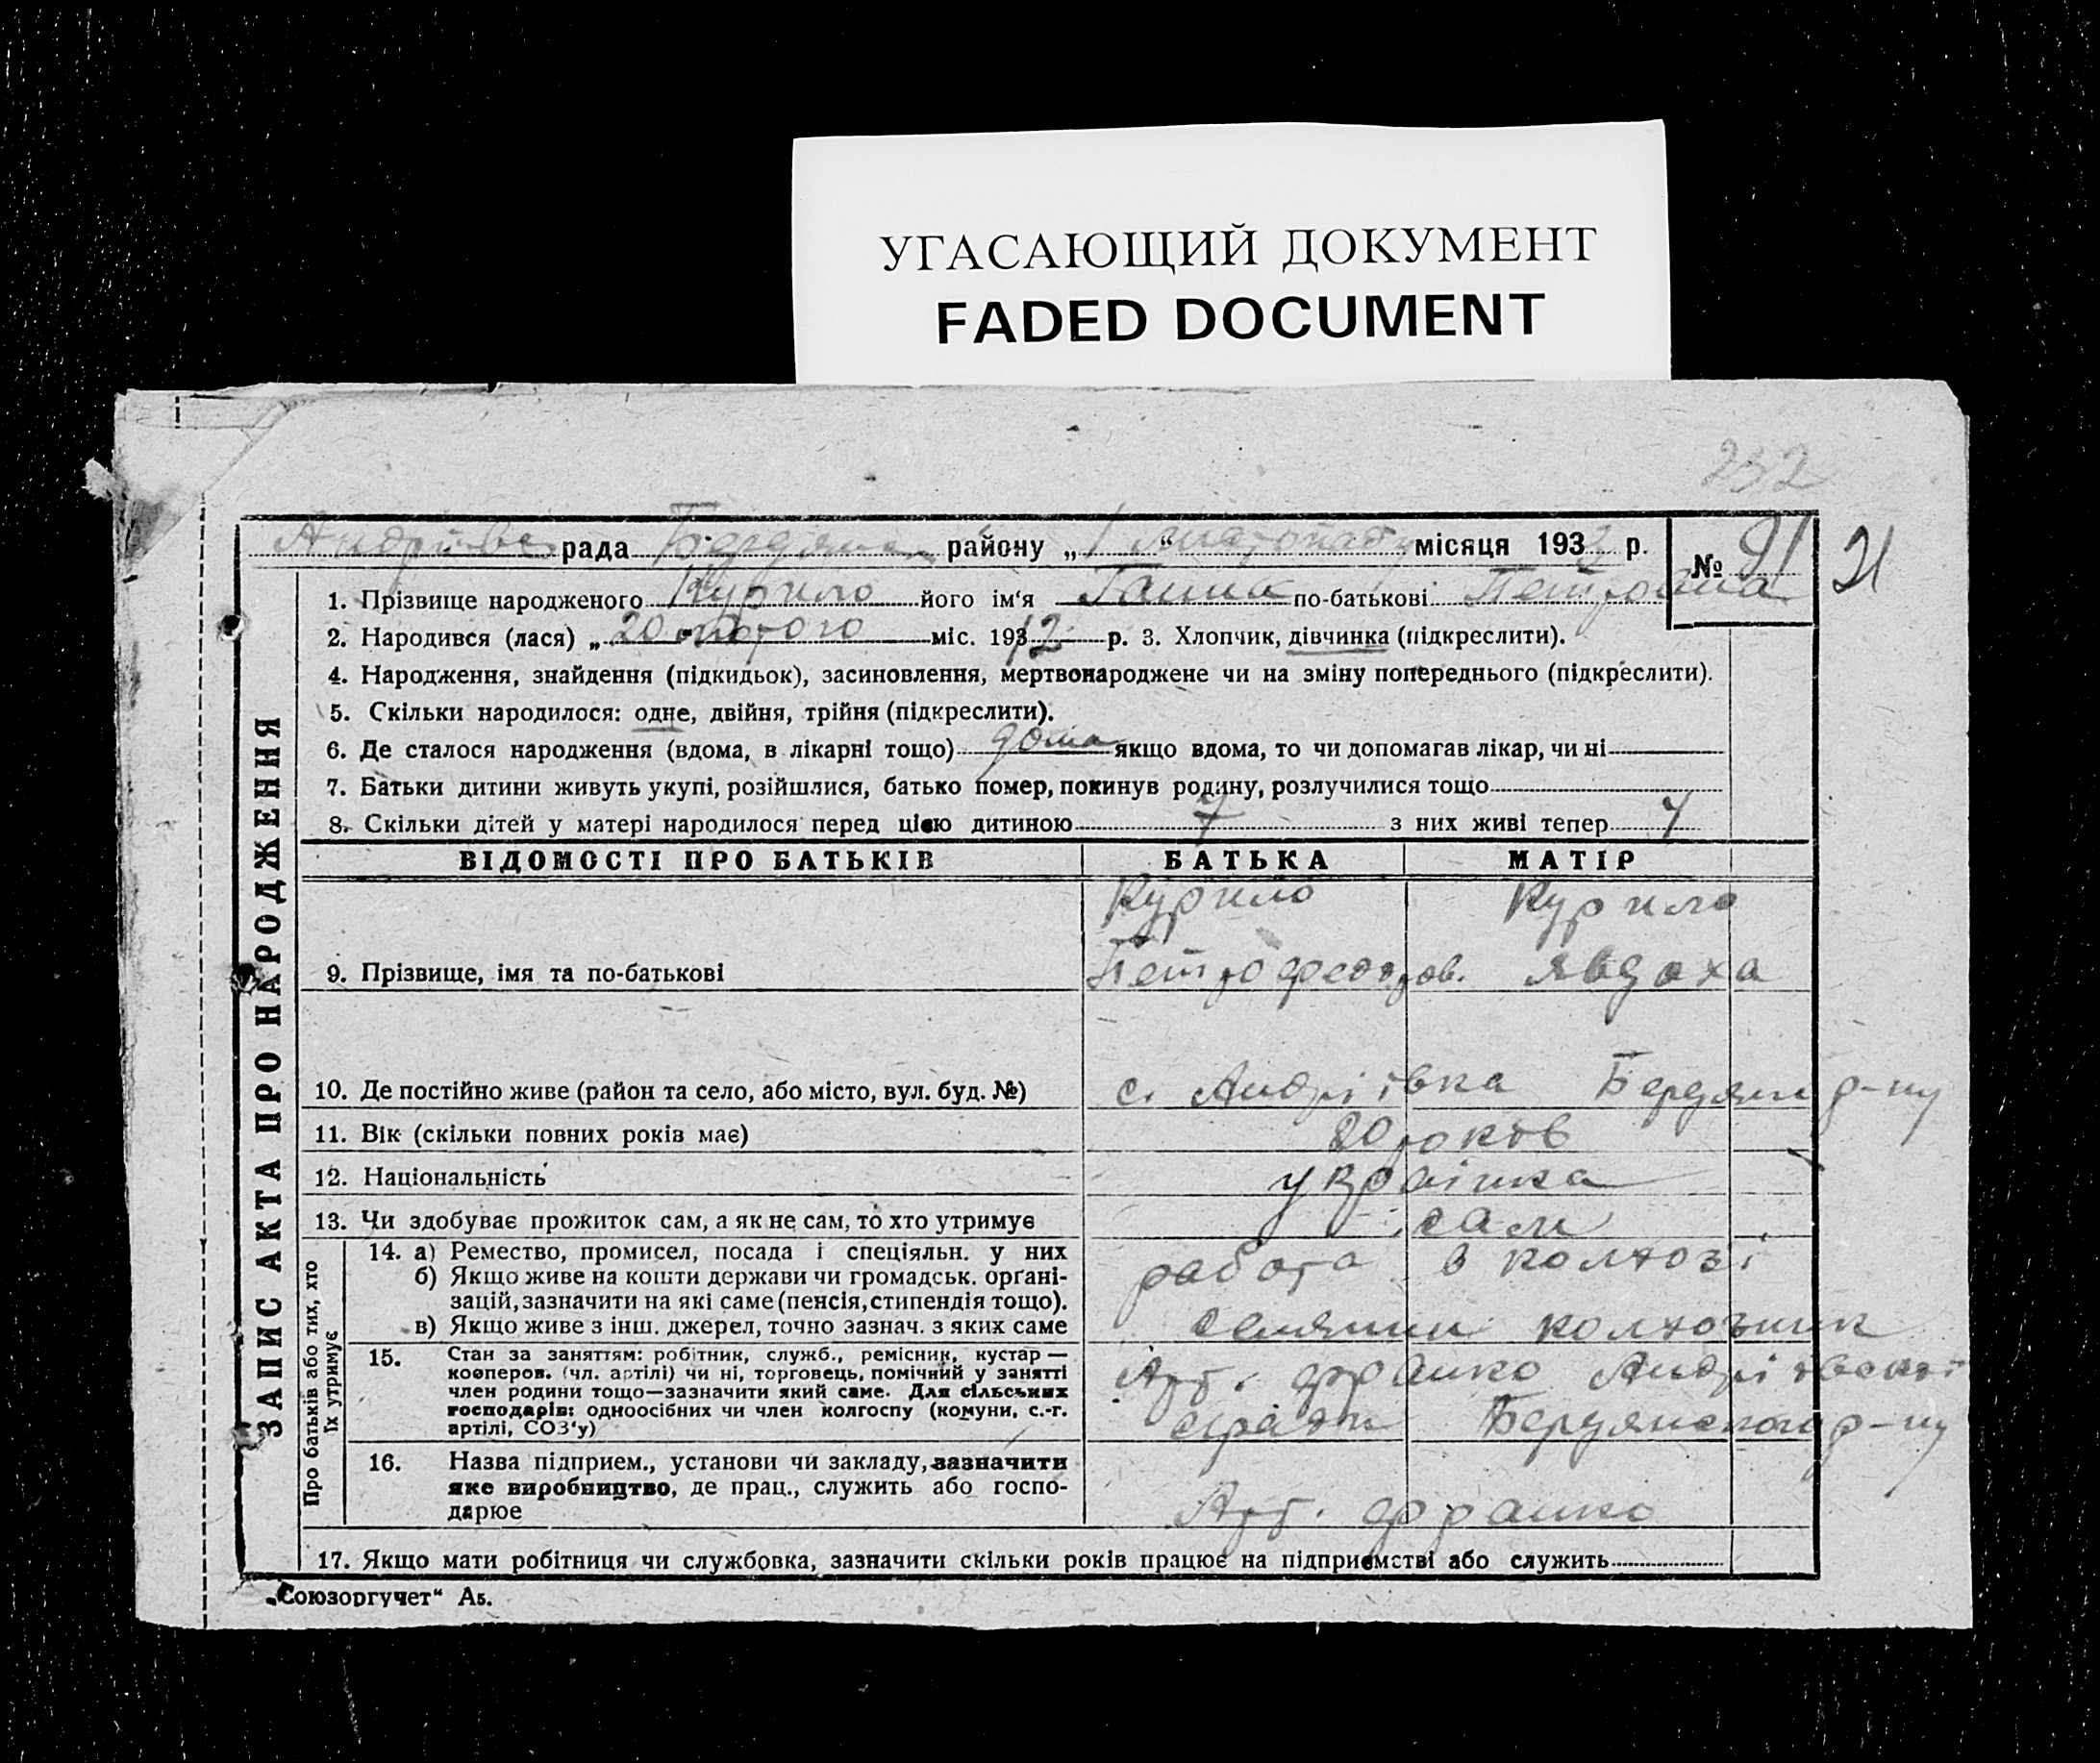 УГАСАЮЩИЙ ДОКУМЕНТ
FADED DOCUMENT
232
рада району „ 1 “ місяця 193 р. № 91 21
ЗАПИС АКТА ПРО НАРОДЖЕННЯ
1. Прізвище народженого Курило його ім‘я Ганна по-батькові Петровна
2. Народився (лася) „ 20 лютого міс. 1912 р. 3. Хлопчик, дівчинка (підкреслити).
4. Народження, знайдення (підкидьок), засиновлення, мертвонароджене чи на зміну попереднього (підкреслити).
5. Скільки народилося: одне, двійня, трійня (підкреслити).
6. Де сталося народження (вдома, в лікарні тощо) дома якщо вдома, то чи допомагав лікар, чи ні
7. Батьки дитини живуть укупі, розійшлися, батько помер, покинув родину, розлучилися тощо
8. Скільки дітей у матері народилося перед цією дитиною 7 з них живі тепер 4
ВІДОМОСТІ ПРО БАТЬКІВ БАТЬКА МАТІР
Курило Курило
9. Прізвище, імя та по-батькові Петро федоров. явдоха
10. Де постійно живе (район та село, або місто, вул. буд. №) с. Андріївка Бердянс р-ну
11. Вік (скільки повних років має) 20 років
12. Національність українка
13. Чи здобуває прожиток сам, а як не сам, то хто утримує сам
Про батьків або тих, хто
їх утримує
14. а) Ремество, промисел, посада і спеціяльн. у них работа в колхозі
б) Якщо живе на кошти держави чи громадськ. орґані-
зацій, зазначити на які саме (пенсія, стипендія тощо).
в) Якщо живе з інш. джерел, точно зазнач. з яких саме селянин колхозник
15. Стан за заняттям: робітник, служб., ремісник, кустар —
кооперов. (чл. артілі) чи ні, торговець, помічний у занятті Арт. франко Андріївської
член родини тощо—зазначити який саме. Для сільських
господарів: одноосібних чи член колгоспу (комуни, с.-г. Бердянского р-ну
артілі, СОЗ‘у)
16. Назва підприєм., установи чи закладу, зазначити
яке виробництво, де прац., служить або госпо-
дарює Арт. франко
17. Якщо мати робітниця чи службовка, зазначити скільки років працює на підприємстві або служить
„Союзоргучет“ А5.